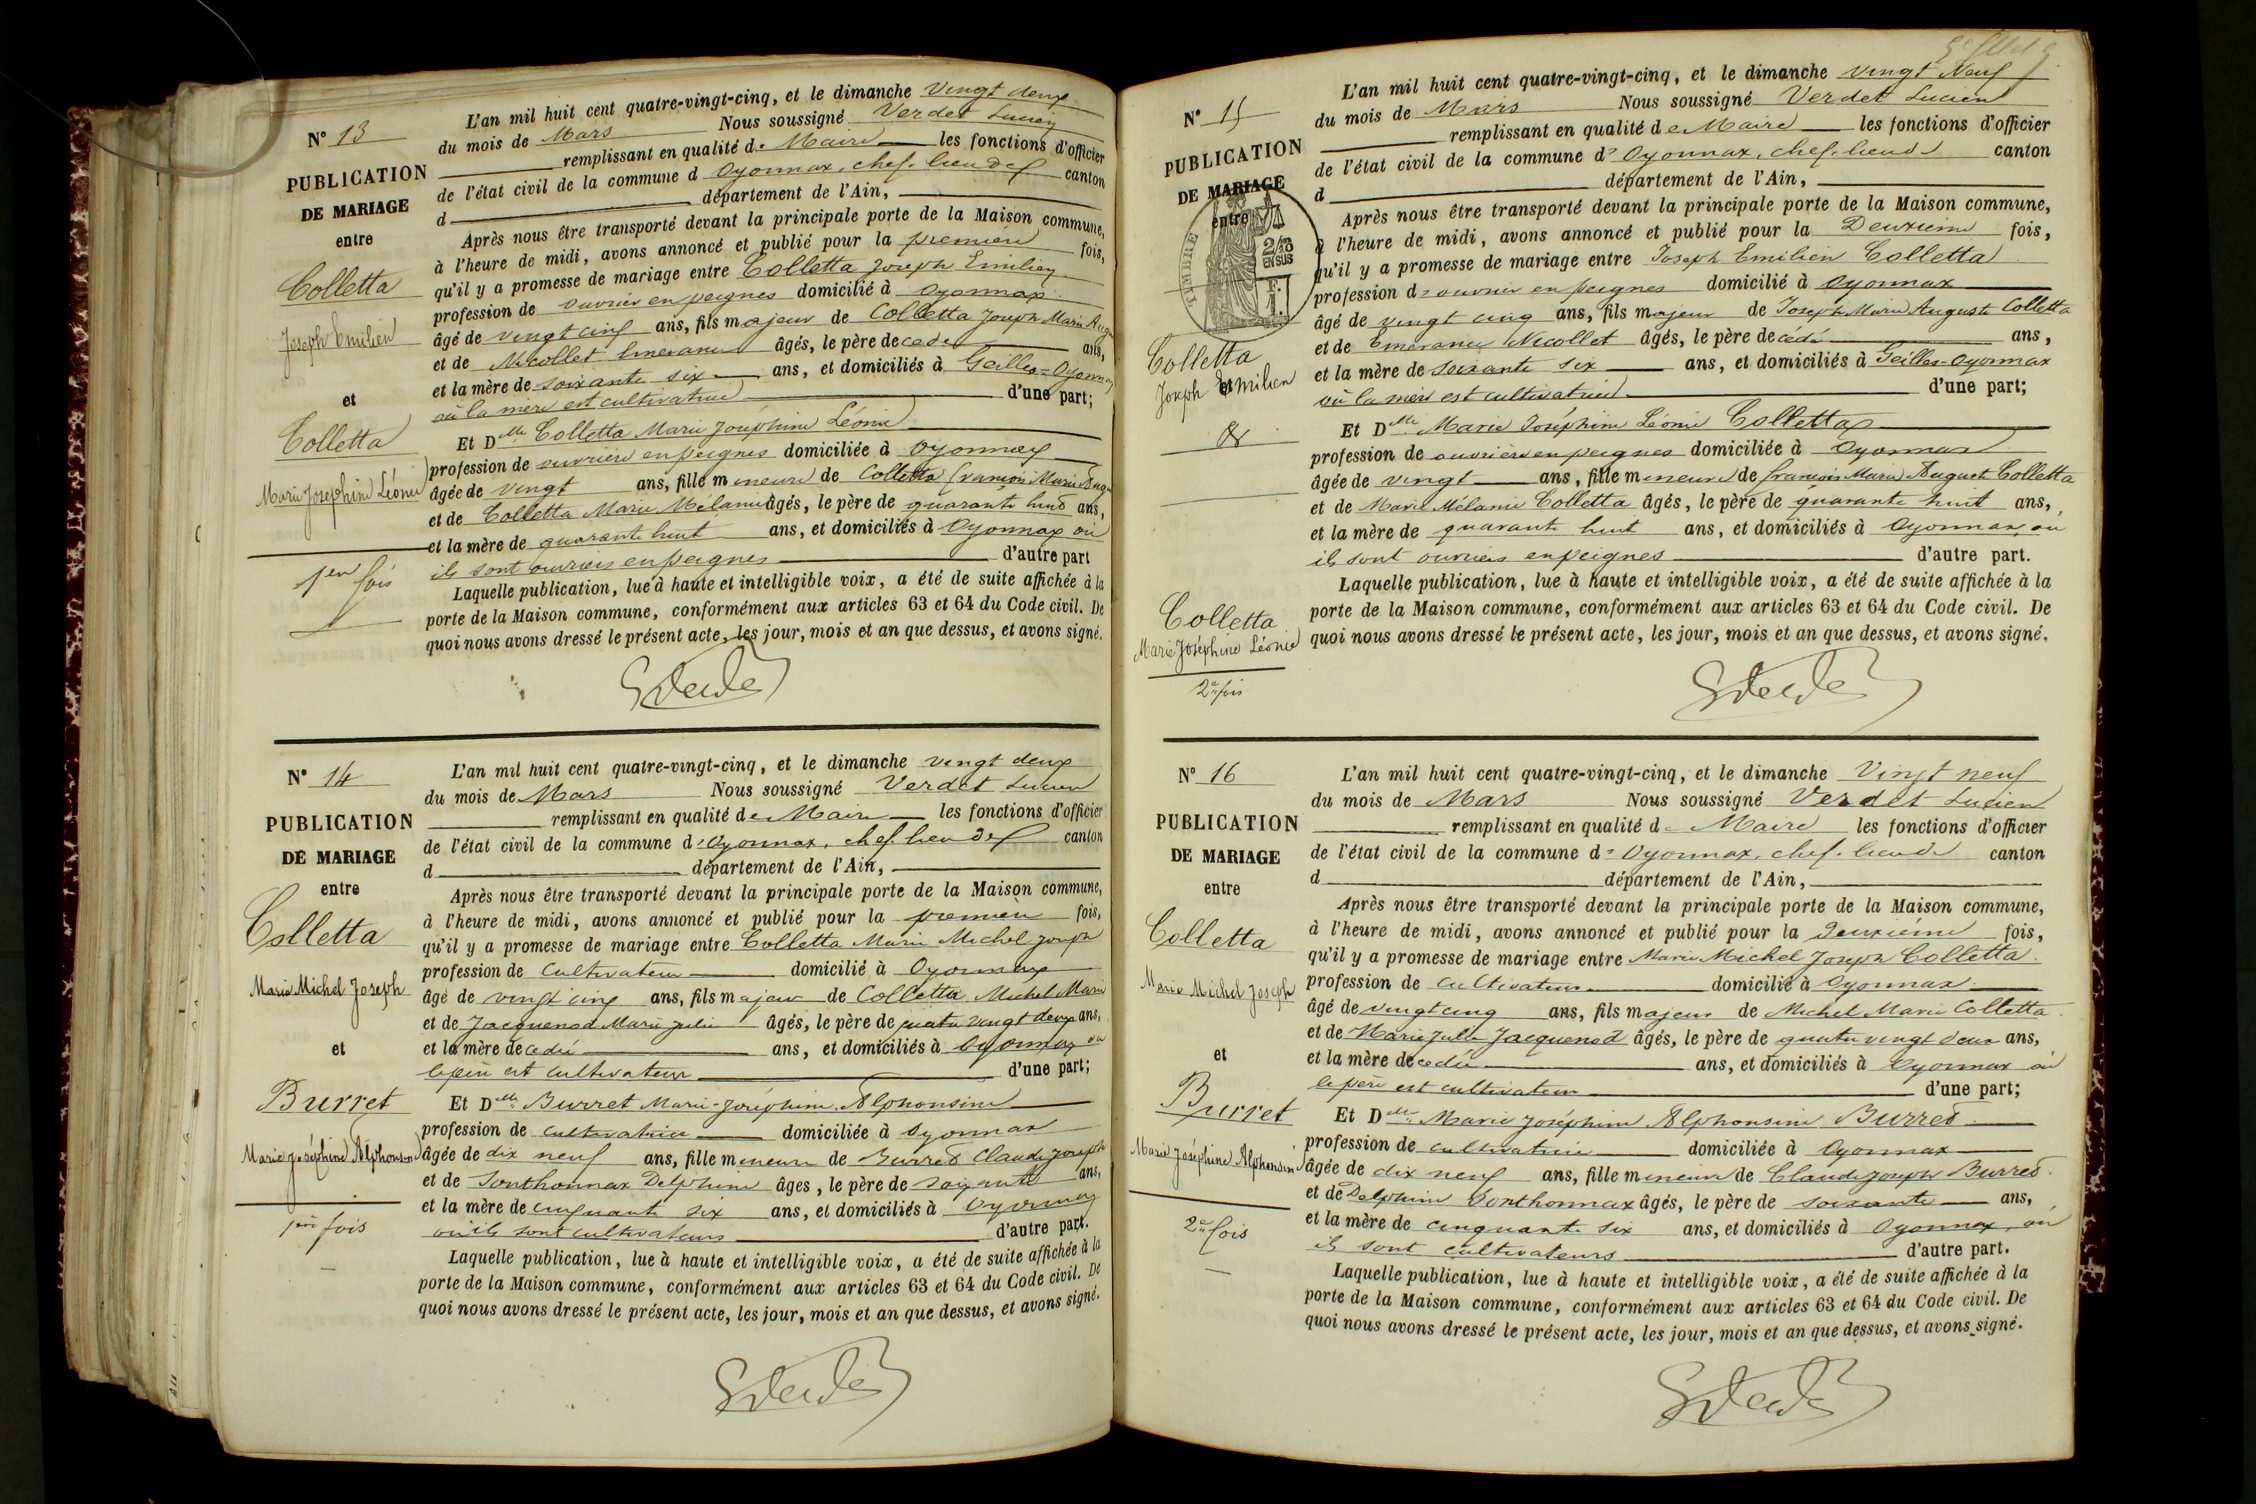 N° 13
PUBLICATION
DE MARIAGE
entre
Colletta
Joseph Emilien
et
Colletta
Marie Joséphine Léonie
1ère fois
L'an mil huit cent quatre-vingt-cinq, et le dimanche vingt deux
du mois de Mars Nous soussigné Verdet Lucien
remplissant en qualité de Maire les fonctions d'officier
de l'état civil de la commune d Oyonnax, chef-lieu de canton
d département de l'Ain,
Après nous être transporté devant la principale porte de la Maison commune,
à l'heure de midi, avons annoncé et publié pour la première fois,
qu'il y a promesse de mariage entre Colletta Joseph Emilien
profession de ouvrier en peignes domicilié à Oyonnax
âgé de vingt cinq ans, fils majeur de Colletta Joseph Marie
et de Nicollet Emerance âgés, le père decédé ans,
et la mère de soixante six ans, et domiciliés à Geilles-Oyonnax
où la mère est cultivatrice d'une part;
Et Dlle Colletta Marie Joséphine Léonie
profession de ouvrière en peignes domiciliée à Oyonnax
âgée de vingt ans, fille mineure de Colletta François Marie
et de Colletta Marie Mélanie âgés, le père de quarante huit ans,
et la mère de quarante huit ans, et domiciliés à Oyonnax où
ils sont ouvriers en peignes d'autre part
Laquelle publication, lue à haute et intelligible voix, a été de suite affichée à la
porte de la Maison commune, conformément aux articles 63 et 64 du Code civil. De
quoi nous avons dressé le présent acte, les jour, mois et an que dessus, et avons signé.
N° 14
PUBLICATION
DE MARIAGE
entre
Colletta
Marie Michel Joseph
et
Burret
Marie Joséphine Alphonsine
1ère fois
L'an mil huit cent quatre-vingt-cinq, et le dimanche vingt deux
du mois de Mars Nous soussigné Verdet Lucien
remplissant en qualité de Maire les fonctions d'officier
de l'état civil de la commune d'Oyonnax, chef-lieu de canton
d département de l'Ain,
Après nous être transporté devant la principale porte de la Maison commune,
à l'heure de midi, avons annoncé et publié pour la première fois,
qu'il y a promesse de mariage entre Colletta Marie Michel Joseph
profession de cultivateur domicilié à Oyonnax
âgé de vingt cinq ans, fils majeur de Colletta Michel Marie
et de Jacquenod Marie Julie âgés, le père de quatre vingt deux ans,
et la mère decédée ans, et domiciliés à Oyonnax où
le père est cultivateur d'une part;
Et Dlle Burret Marie-Joséphine Alphonsine
profession de cultivatrice domiciliée à Oyonnax
âgée de dix neuf ans, fille mineure de Burret Claude Joseph
et de Sonthonnax Delphine âges, le père de soixante ans,
et la mère de cinquante six ans, et domiciliés à Oyonnax
où ils sont cultivateurs d'autre part.
Laquelle publication, lue à haute et intelligible voix, a été de suite affichée à la
porte de la Maison commune, conformément aux articles 63 et 64 du Code civil. De
quoi nous avons dressé le présent acte, les jour, mois et an que dessus, et avons signé.
N° 15
PUBLICATION
DE MARIAGE
entre
TIMBRE
2/10
EN SUS
Colletta
Joseph Emilien
et
&
Colletta
Marie Joséphine Léonie
2e fois
L'an mil huit cent quatre-vingt-cinq, et le dimanche vingt Neuf
du mois de Mars Nous soussigné Verdet Lucien
remplissant en qualité de Maire les fonctions d'officier
de l'état civil de la commune d'Oyonnax, chef-lieu de canton
d département de l'Ain,
Après nous être transporté devant la principale porte de la Maison commune,
à l'heure de midi, avons annoncé et publié pour la Deuxième fois,
qu'il y a promesse de mariage entre Joseph Emilien Colletta
profession de ouvrier en peignes domicilié à Oyonnax
âgé de vingt cinq ans, fils majeur de Joseph Marie Auguste Colletta
et de Emerance Nicollet âgés, le père decédé ans,
et la mère de soixante six ans, et domiciliés à Geilles-Oyonnax
où la mère est cultivatrice d'une part;
Et Dlle Marie Joséphine Léonie Colletta
profession de ouvrière en peignes domiciliée à Oyonnax
âgée de vingt ans, fille mineure de François Marie August Colletta
et de Marie Mélanie Colletta âgés, le père de quarante huit ans,
et la mère de quarante huit ans, et domiciliés à Oyonnax, où
ils sont ouvriers en peignes d'autre part.
Laquelle publication, lue à haute et intelligible voix, a été de suite affichée à la
porte de la Maison commune, conformément aux articles 63 et 64 du Code civil. De
quoi nous avons dressé le présent acte, les jour, mois et an que dessus, et avons signé.
N° 16
PUBLICATION
DE MARIAGE
entre
Colletta
Marie Michel Joseph
et
Burret
Marie Joséphine Alphonsine
2e fois
L'an mil huit cent quatre-vingt-cinq, et le dimanche Vingt neuf
du mois de Mars Nous soussigné Verdet Lucien
remplissant en qualité de Maire les fonctions d'officier
de l'état civil de la commune d'Oyonnax, chef-lieu de canton
d département de l'Ain,
Après nous être transporté devant la principale porte de la Maison commune,
à l'heure de midi, avons annoncé et publié pour la Deuxième fois,
qu'il y a promesse de mariage entre Marie Michel Joseph Colletta
profession de cultivateur domicilié à Oyonnax
âgé de vingt cinq ans, fils majeur de Michel Marie Colletta
et de Marie Julie Jacquenod âgés, le père de quatre vingt deux ans,
et la mère decédée ans, et domiciliés à Oyonnax où
le père est cultivateur d'une part;
Et Dlle Marie Joséphine Alphonsine Burret
profession de cultivatrice domiciliée à Oyonnax
âgée de dix neuf ans, fille mineure de Claude Joseph Burret
et de Delphine Sonthonnax âgés, le père de soixante ans,
et la mère de cinquante six ans, et domiciliés à Oyonnax, où
ils sont cultivateurs d'autre part.
Laquelle publication, lue à haute et intelligible voix, a été de suite affichée à la
porte de la Maison commune, conformément aux articles 63 et 64 du Code civil. De
quoi nous avons dressé le présent acte, les jour, mois et an que dessus, et avons signé.